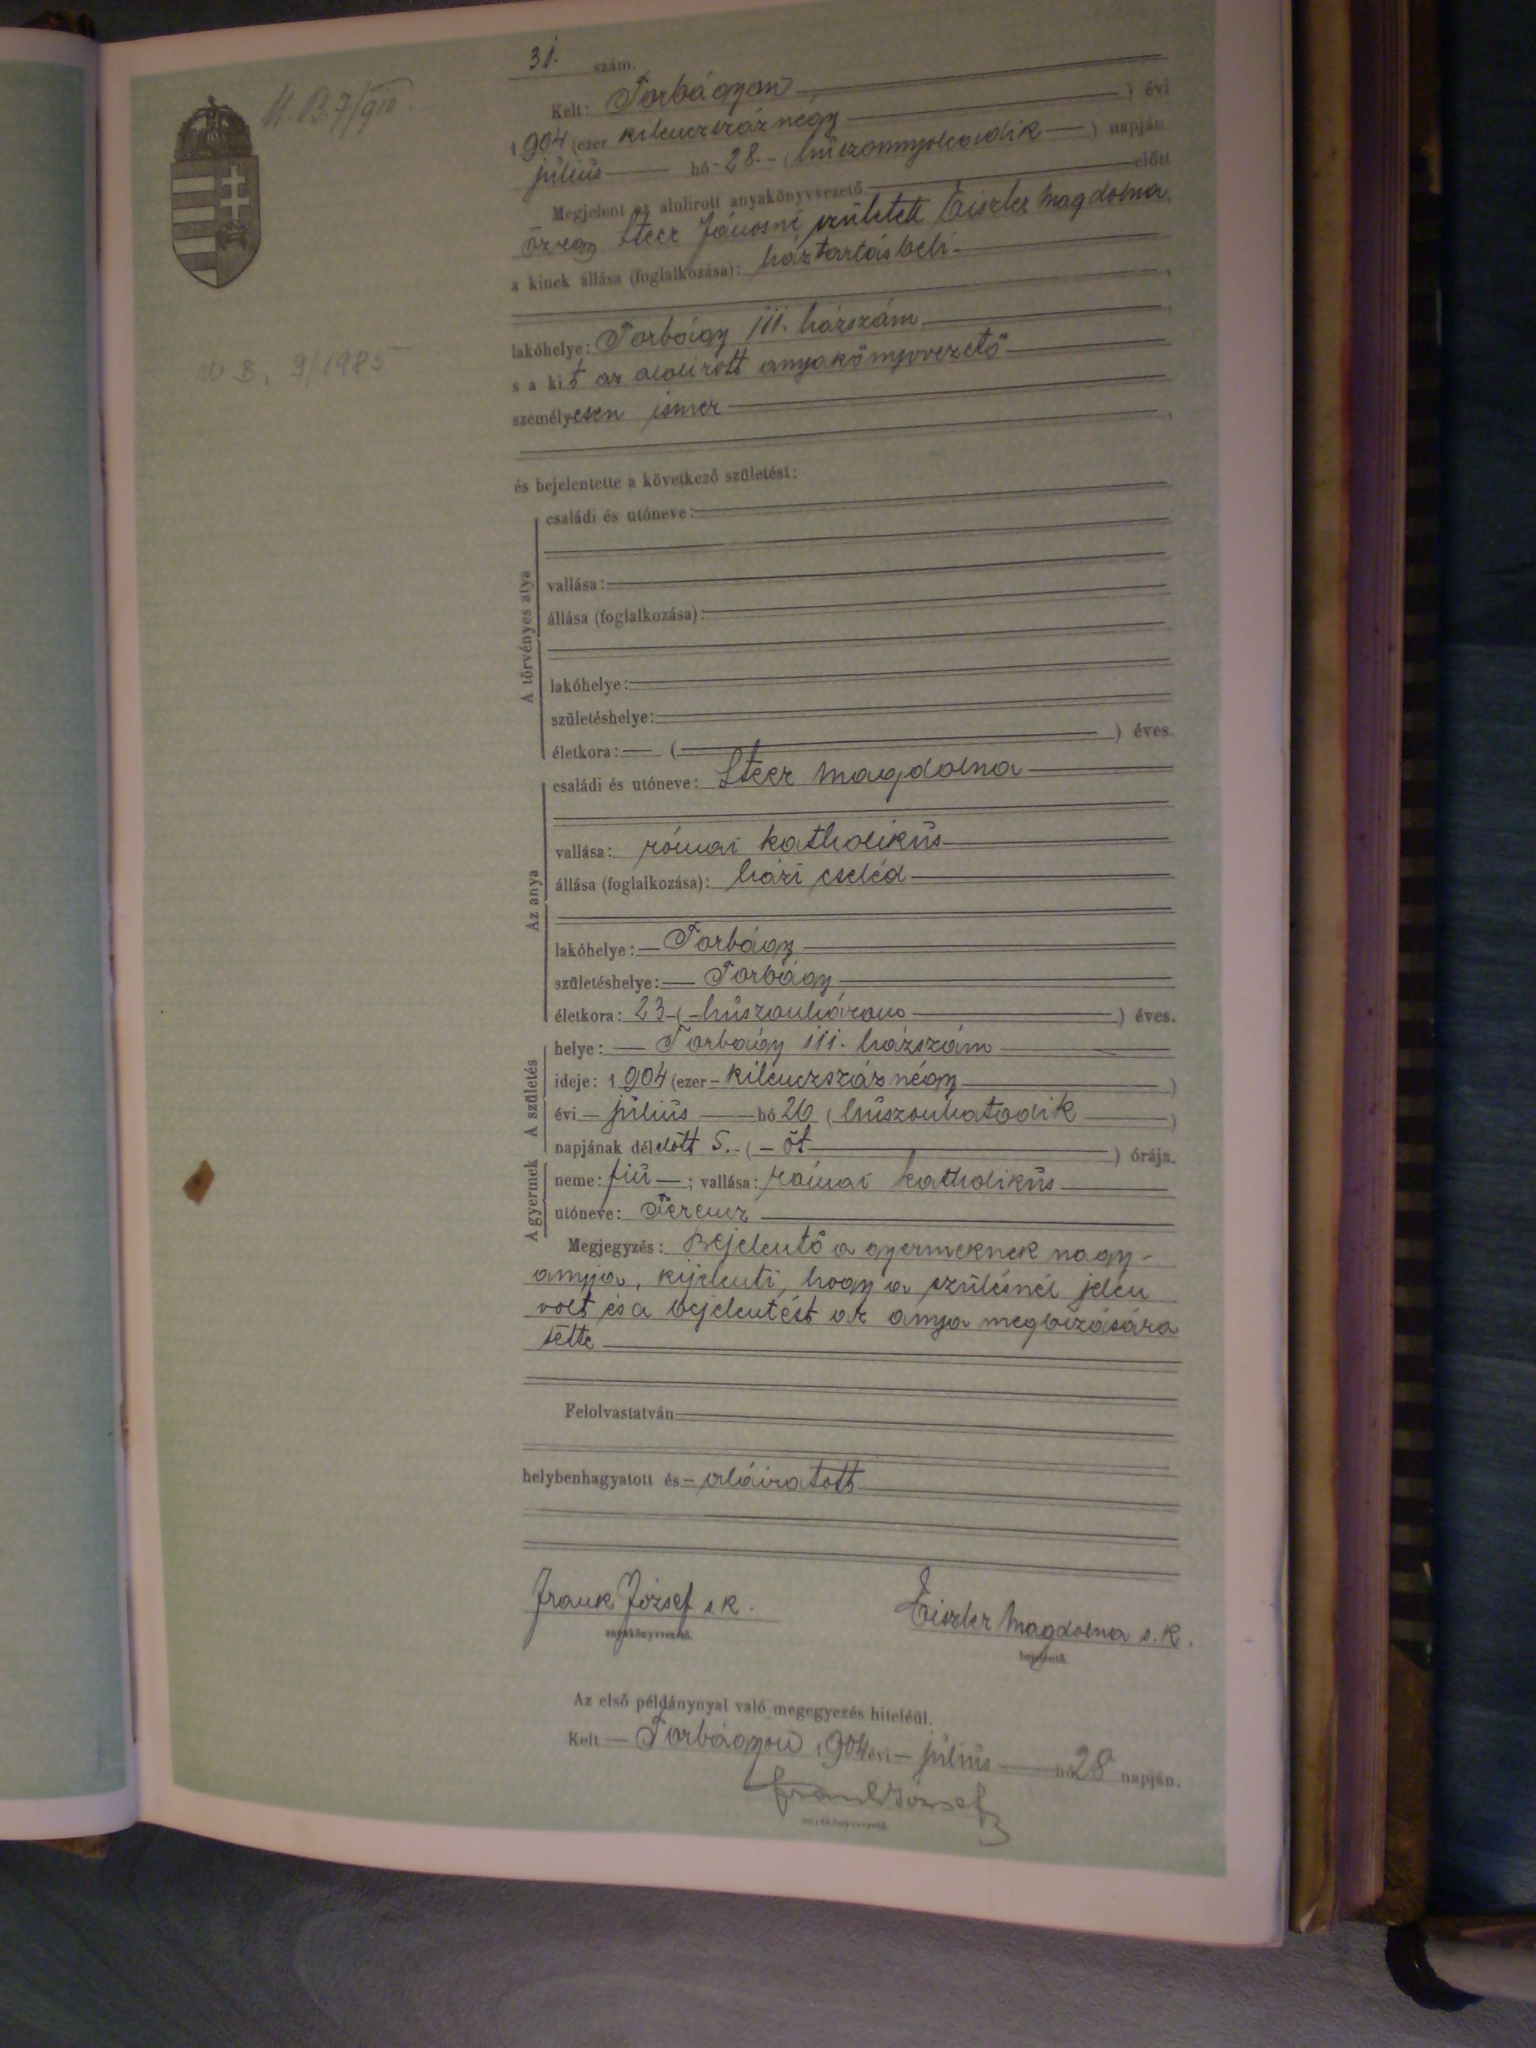 31. szám.
Kelt: Torbágyon
1904 (ezer kilenczszáznégy) évi
július hó 28. (huszonnyolczadik) napján.
Megjelent az alulírott anyakönyvvezető előtt
özvegy Steer Jánosné született Eiszler Magdolna,
a kinek állása (foglalkozása): háztartásbeli
lakóhelye: Torbágy 111. házszám
s a kit az alulírott anyakönyvvezető
személyesen ismer
és bejelentette a következő születést:
A törvényes atya
családi és utóneve:
vallása:
állása (foglalkozása):
lakóhelye:
születéshelye:
életkora: ( ) éves.
Az anya
családi és utóneve: Steer Magdolna
vallása: római katholikus
állása (foglalkozása): házi cseléd
lakóhelye: Torbágy
születéshelye: Torbágy
életkora: 23 (huszonhárom) éves.
A születés
helye: Torbágy 111. házszám
ideje: 1904 (ezer kilenczszáznégy)
évi július hó 26 (huszonhatodik)
napjának délelőtt 5. (öt) órája.
A gyermek
neme: fiú; vallása: római katholikus
utóneve: Ferencz
Megjegyzés: Bejelentő a gyermeknek nagy-
anyja, kijelenti, hogy a szülésnél jelen
volt és a bejelentést az anya megbizására
tette
Felolvastatván
helybenhagyatott és aláiratott
Frank József s.k.
anyakönyvvezető.
Eiszler Magdolna s.k.
bejelentő.
Az első példánynyal való megegyezés hiteléül.
Kelt Torbágyon 1904 évi július hó 28 napján.
Frank József
anyakönyvvezető.
9/1985